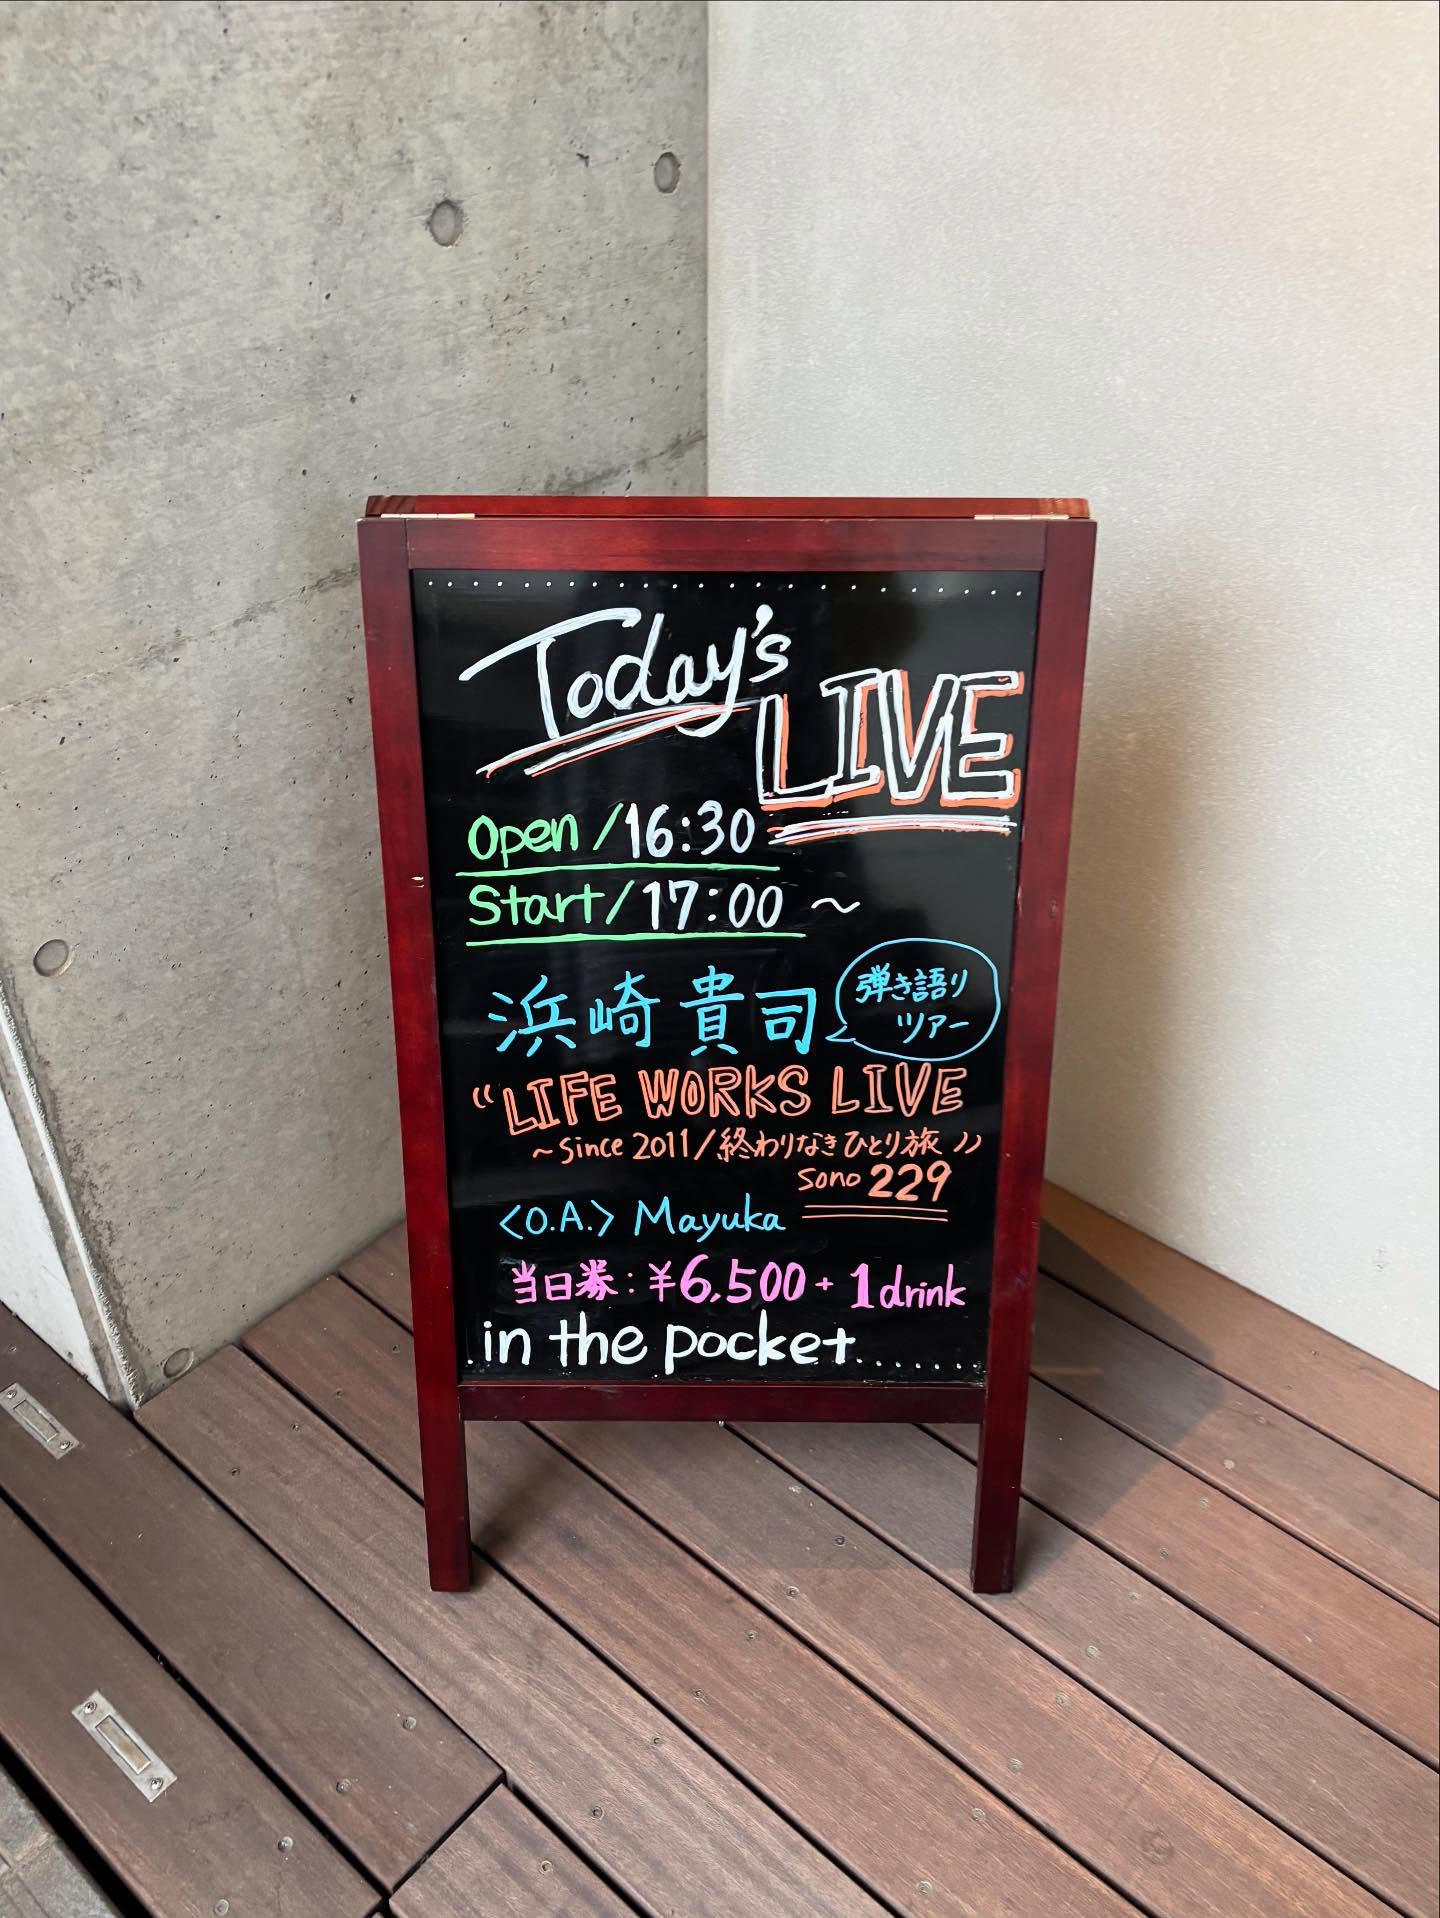 Today's
LIVE
Open/16:30
Start/17:00 ～
浜崎貴司
弾き語り
ツアー
“LIFE WORKS LIVE
～since 2011/終わりなきひとり旅”
sono 229
〈O.A.〉 Mayuka
当日券:¥6,500+1drink
in the pocket